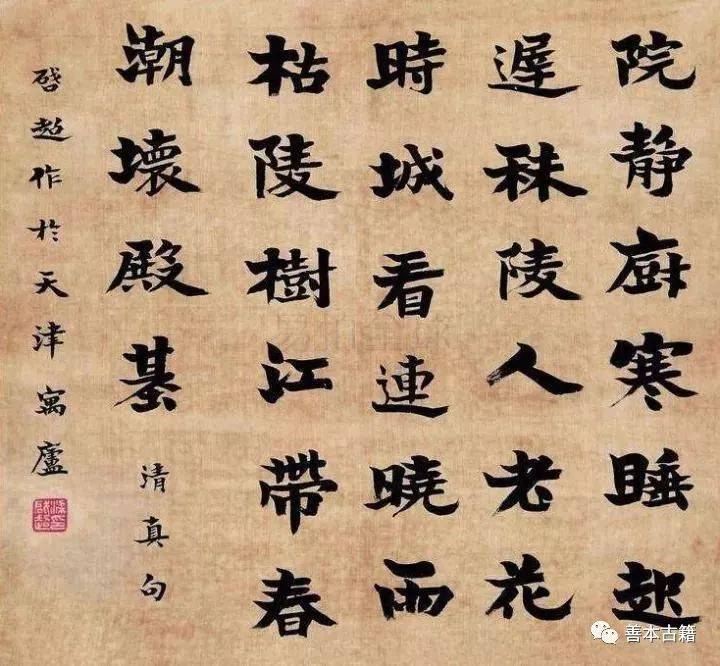 院静廚寒睡起
遲秣陵人老花
時城看連曉雨
枯陵樹江帶春
潮壞殿基
清真句
啓超作於天津寓廬
善本古籍